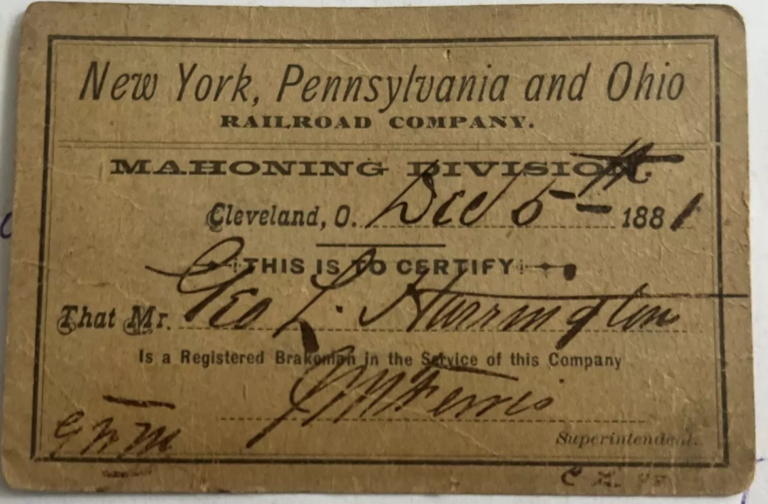 New York, Pennsylvania and Ohio
RAILROAD COMPANY.
MAHONING DIVISION.
Cleveland, O. Dec 5th 1881
THIS IS TO CERTIFY
That Mr. Geo L. Harrington
Is a Registered Brakeman in the Service of this Company
Ferris
Superintendent.